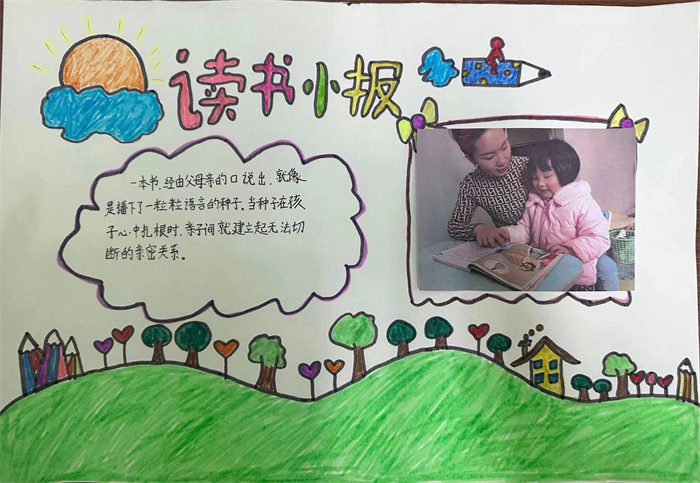 读书小报
一本书,经由父母亲的口说出,就像
是播下了一粒粒语言的种子。当种子在孩
子心中扎根时,亲子间就建立起无法切
断的亲密关系。